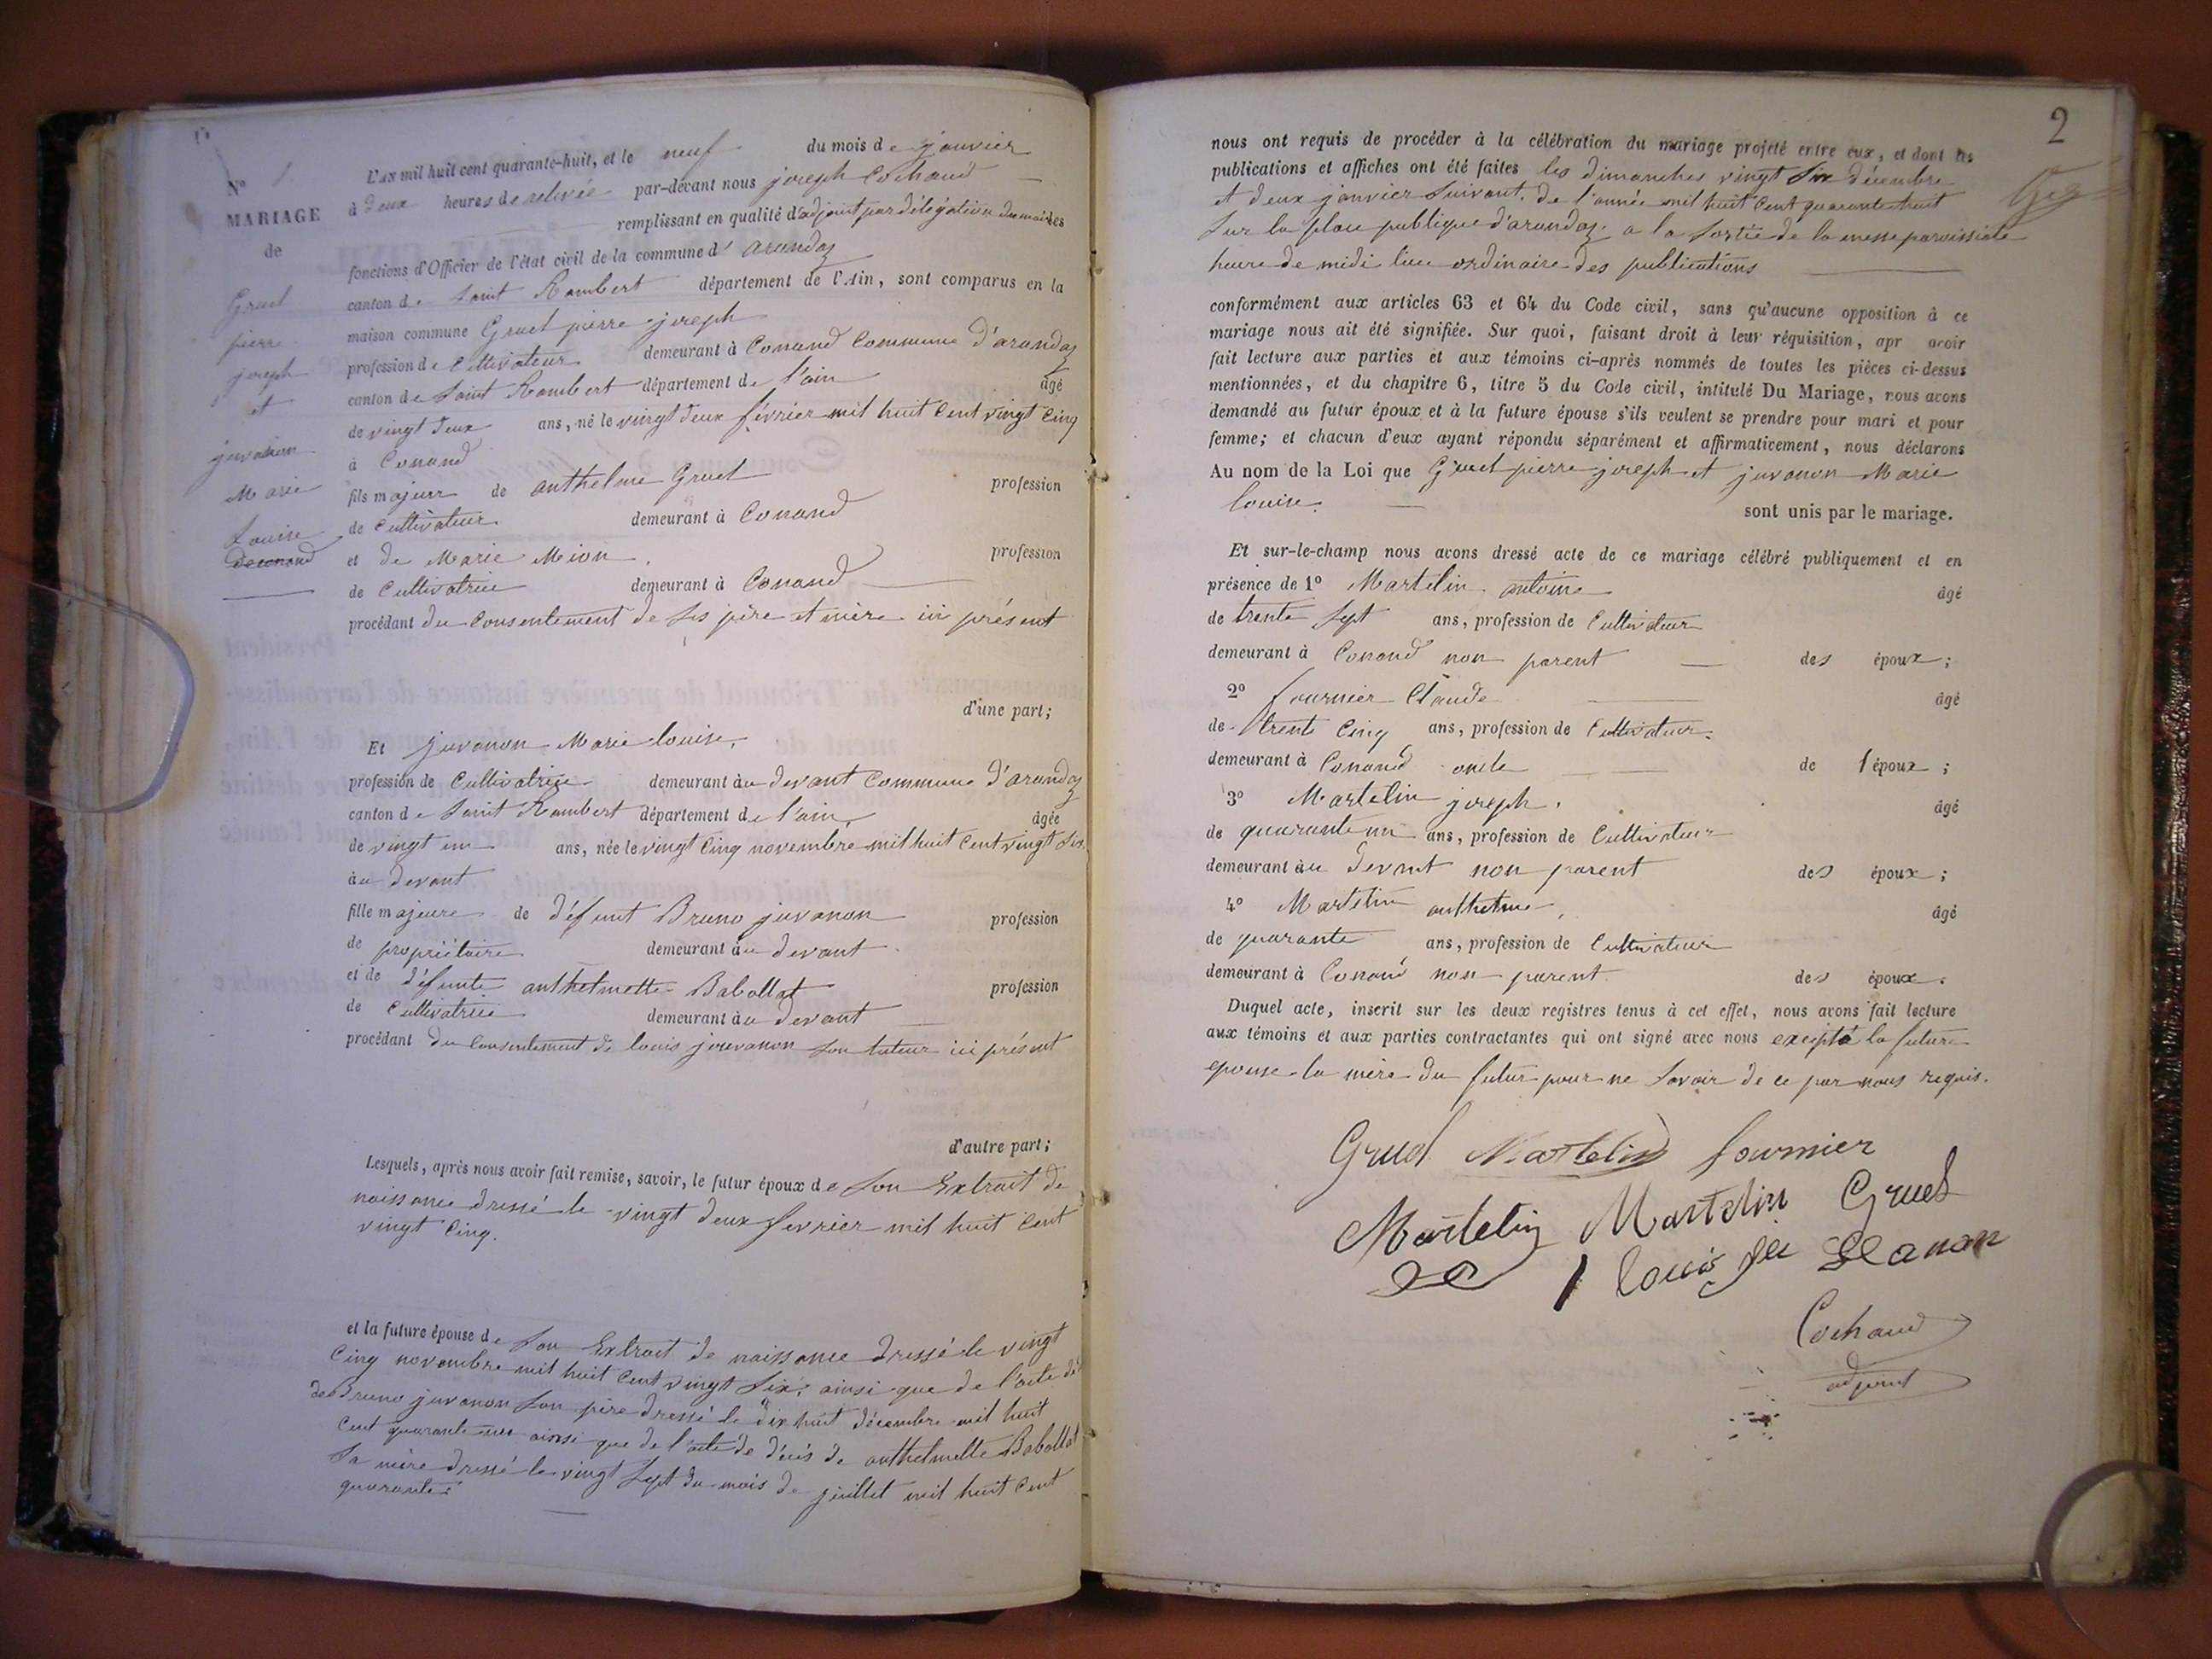 N° 1
MARIAGE
de
Gruel
pierre
joseph
et
juvanon
Marie
Louise
L'AN mil huit cent quarante-huit, et le neuf du mois de janvier
à deux heures de relevée par-dévant nous joseph Cochand
remplissant en qualité d'adjoint par délégation du maire les
fonctions d'Officier de l'état civil de la commune d' arandaz
canton de Saint Rambert département de l'Ain, sont comparus en la
maison commune Gruel pierre joseph
profession de Cultivateur demeurant à Conand Commune d'arandaz
canton de Saint Rambert département de l'ain âgé
de vingt deux ans, né le vingt deux février mil huit Cent vingt Cinq
à Conand
fils majeur de anthelme Gruel profession
de Cultivateur demeurant à Conand
et de Marie Mion profession
de Cultivatrice demeurant à Conand
procédant du Consentement de ses père et mère ici présent
d'une part;
Et juvanon Marie louise,
profession de Cultivatrice demeurant àu devant Commune d'arandaz
canton de Saint Rambert département de l'ain, âgée
de vingt un ans, née le vingt Cinq novembre mil huit Cent vingt Six
àu devant
fille majeure de défunt Bruno juvanon profession
de propriétaire demeurant àu devant
et de défunte anthelmette Babollat profession
de Cultivatrice demeurant àu devant
procédant du Consentement de louis jouvanon son tuteur ici présent
d'autre part;
Lesquels, après nous avoir fait remise, savoir, le futur époux de son Extrait de
naissance dressé le vingt deux fevrier mil huit Cent
vingt Cinq.
et la future épouse de son Extrait de naissance dressé le vingt
Cinq novembre mil huit Cent vingt Six, ainsi que de l'acte de
de Bruno juvanon son père dressé le dix huit décembre mil huit
Cent quarante ainsi que de l'acte de décès de anthelmette Babollat
sa mère dressé le vingt Sept du mois de juillet mil huit Cent
quarante
2
nous ont requis de procéder à la célébration du mariage projeté entre eux, et dont les
publications et affiches ont été faites les dimanches vingt Six décembre
et deux janvier suivant, de l'année mil huit Cent quarante huit
Sur la place publique d'arandaz a la Sortie de la messe paroissiale
heure de midi lieu ordinaire des publications
conformément aux articles 63 et 64 du Code civil, sans qu'aucune opposition à ce
mariage nous ait été signifiée. Sur quoi, faisant droit à leur réquisition, apr avoir
fait lecture aux parties et aux témoins ci-après nommés de toutes les pièces ci-dessus
mentionnées, et du chapitre 6, titre 5 du Code civil, intitulé Du Mariage, nous avons
demandé au futur époux et à la future épouse s'ils veulent se prendre pour mari et pour
femme; et chacun d'eux ayant répondu séparément et affirmativement, nous déclarons
Au nom de la Loi que Gruel pierre joseph et juvanon Marie
louise. sont unis par le mariage.
Et sur-le-champ nous avons dressé acte de ce mariage célébré publiquement et en
présence de 1° Martelin antoine âgé
de trente Sept ans, profession de Cultivateur
demeurant à Conand non parent des époux;
2° fournier Claude âgé
de trente Cinq ans, profession de Cultivateur
demeurant à Conand oncle de l époux;
3° Martelin joseph. âgé
de quarante un ans, profession de Cultivateur
demeurant àu devant non parent des époux;
4° Martelin anthelme, âgé
de quarante ans, profession de Cultivateur
demeurant à Conand non parent des époux.
Duquel acte, inscrit sur les deux registres tenus à cet effet, nous avons fait lecture
aux témoins et aux parties contractantes qui ont signé avec nous excepté la future
epouse la mère du futur pour ne savoir de ce par nous requis.
Gruel Martelin fournier
Martelin Martelin Gruel
louis
Cochand
adjoint